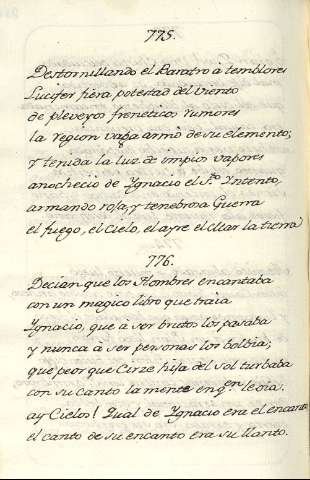 775.
Destornillando el Baratro à temblores
Lucifer fiera potestad del viento
de pleveyos freneticos rumores
la region vaga armò de su elemento;
y teñida la luz de impios vapores
anochecio de Ygnacio el Sto. Yntento,
armando roja, y tenebrosa Guerra
el fuego, el cielo, el ayre el Mar la tierra
776.
Decian que los Hombres encantaba
con un magico libro que traia
Ygnacio, que à ser brutos los pasaba
y nunca à ser personas los bolbia;
que peor que Cirze hija del sol turbaba
con su canto la mente en qn. leìa,
ay Cielos! Qual de Ygnacio era el encanto
el canto de su encanto era su llanto.